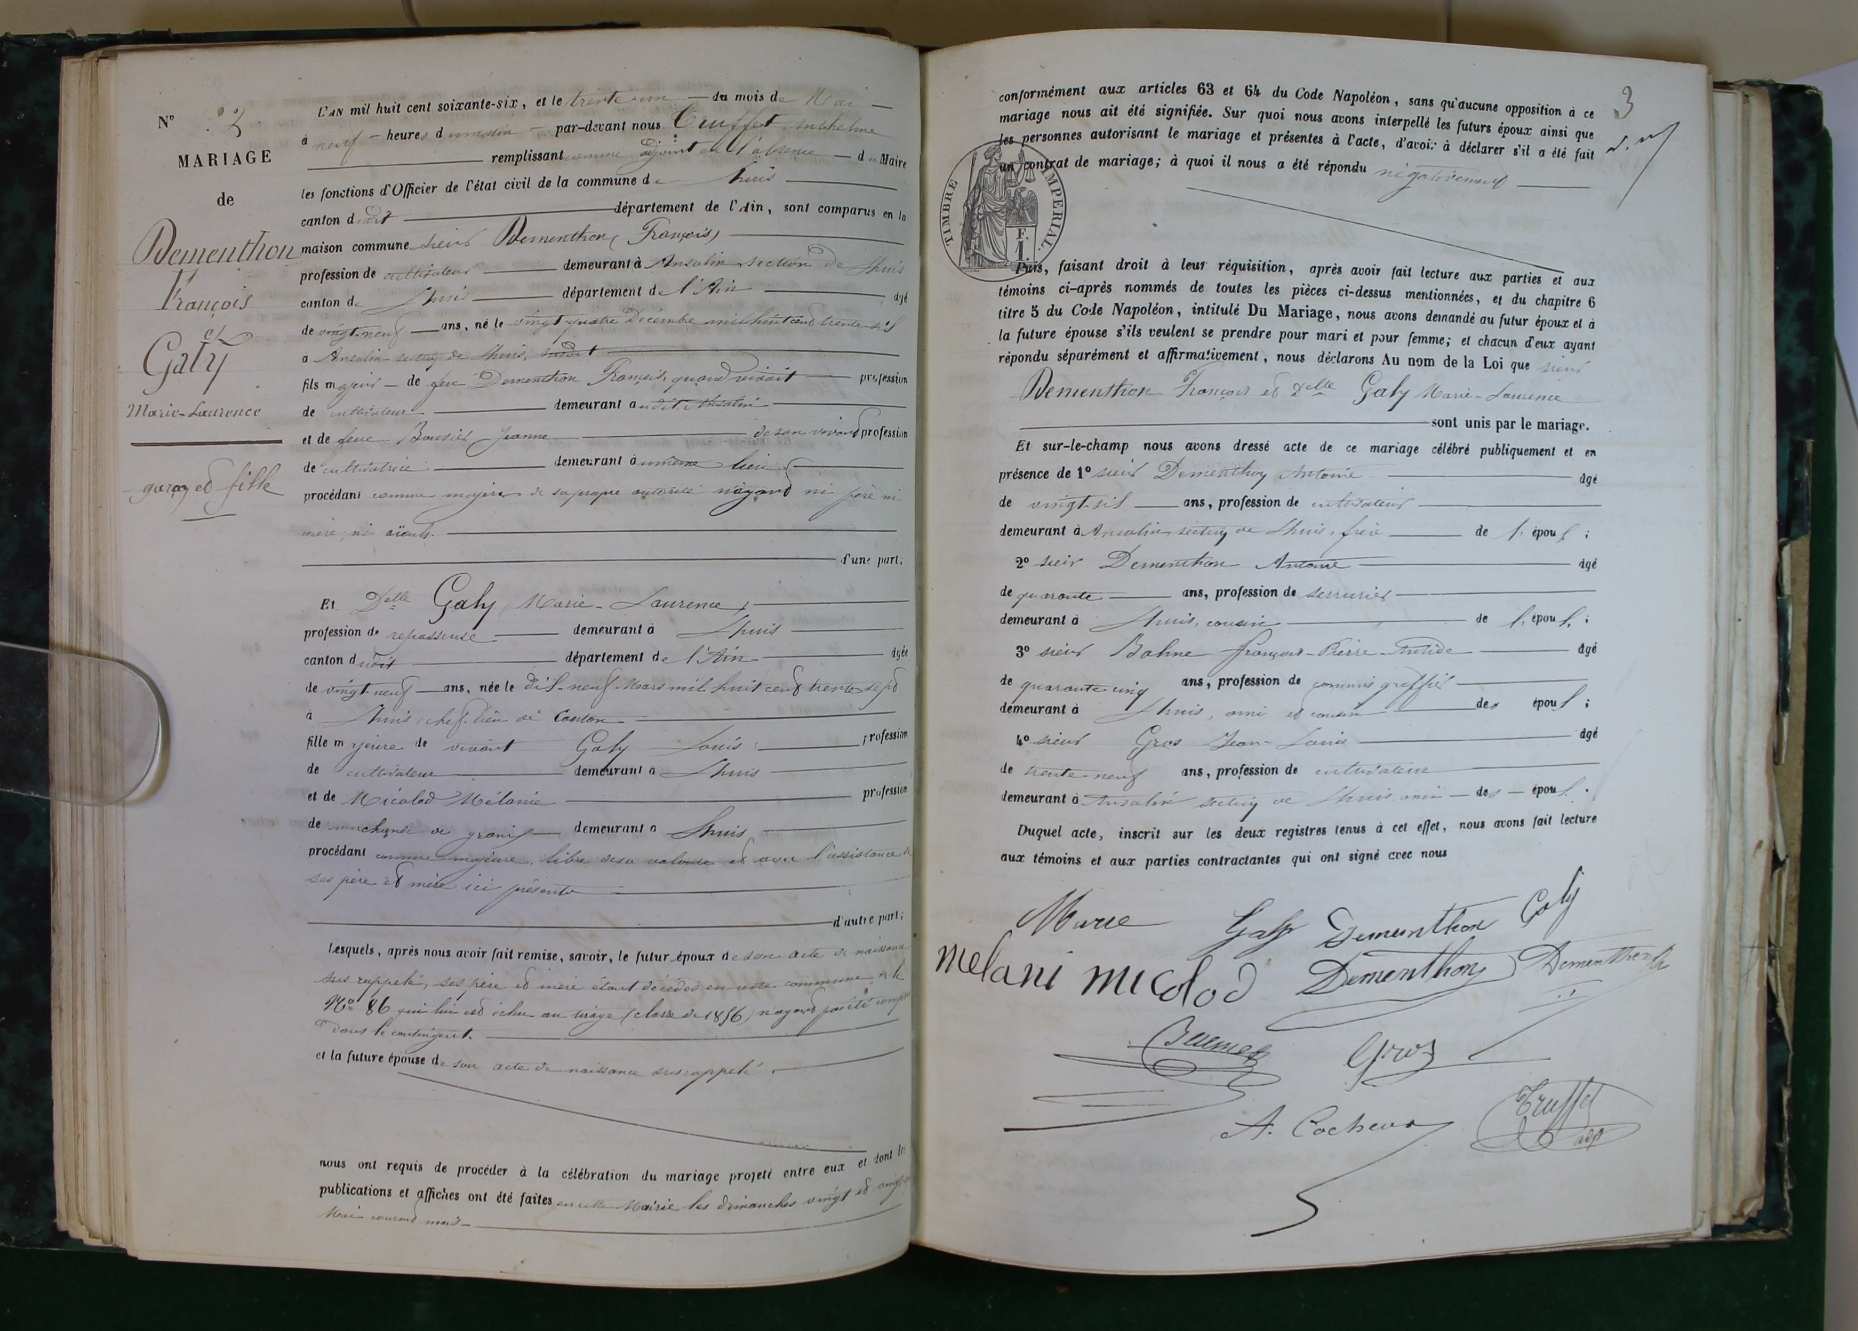 N° 3
MARIAGE
de
Dementhon
François
et
Galy
Marie-Laurence
garçon et fille
L'AN mil huit cent soixante-six, et le trente un du mois de Mai
à neuf heures du matin par-devant nous Truffet Anthelme
remplissant comme adjoint en l'absence du Maire
les fonctions d'Officier de l'état civil de la commune de Lhuis
canton dudit département de l'Ain, sont comparus en la
maison commune sieur Dementhon, François,
profession de cultivateur demeurant à Ansolin section de Lhuis
canton de Lhuis département de l'Ain âgé
de vingt neuf ans, né le vingt quatre Décembre mil huit cent trente six
à Ansolin section de Lhuis, susdit
fils majeur de feu Dementhon François, quand vivait profession
de cultivateur demeurant audit Ansolin
et de feue Jeanne de son vivant profession
de cultivatrice demeurant à même lieu
procédant comme majeur de sa propre autorité n'ayant ni père ni
mère, ni aïeuls.
d'une part;
Et Delle Galy, Marie-Laurence,
profession de repasseuse demeurant à Lhuis
canton dudit département de l'Ain âgée
de vingt neuf ans, née le dix-neuf Mars mil huit cent trente sept
à Lhuis, chef-lieu de Canton
fille majeure de vivant Galy Louis profession
de cultivateur demeurant à Lhuis
et de Micolod Mélanie profession
de marchande de grains demeurant à Lhuis
procédant comme majeure, libre de sa volonté et avec l'assistance de
ses père et mère ici présents
d'autre part;
Lesquels, après nous avoir fait remise, savoir, le futur époux de son acte de naissance
sus rappelé, ses père et mère étant décédés en cette commune, et le
N° 86 qui lui est échu au tirage (classe de 1856) n'ayant pas été compris
dans le contingent.
et la future épouse de son acte de naissance susrappelé.
nous ont requis de procéder à la célébration du mariage projeté entre eux et dont les
publications et affiches ont été faites en cette Mairie les dimanches vingt et vingt
Mai courant mois
3
conformément aux articles 63 et 64 du Code Napoléon, sans qu'aucune opposition à ce
mariage nous ait été signifiée. Sur quoi nous avons interpellé les futurs époux ainsi que
les personnes autorisant le mariage et présentes à l'acte, d'avoir à déclarer s'il a été fait
un contrat de mariage; à quoi il nous a été répondu négativement
TIMBRE IMPERIAL
F.
1
Puis, faisant droit à leur réquisition, après avoir fait lecture aux parties et aux
témoins ci-après nommés de toutes les pièces ci-dessus mentionnées, et du chapitre 6
titre 5 du Code Napoléon, intitulé Du Mariage, nous avons demandé au futur époux et à
la future épouse s'ils veulent se prendre pour mari et pour femme; et chacun d'eux ayant
répondu séparément et affirmativement, nous déclarons Au nom de la Loi que sieur
Dementhon François et Delle Galy Marie-Laurence
sont unis par le mariage.
Et sur-le-champ nous avons dressé acte de ce mariage célébré publiquement et en
présence de 1° sieur Dementhon Antoine âgé
de vingt-six ans, profession de cultivateur
demeurant à Ansolin section de Lhuis, frère de l'époux;
2° sieur Dementhon Antoine âgé
de quarante ans, profession de serrurier
demeurant à Lhuis, cousin de l'époux;
3° sieur François-Pierre âgé
de quarante cinq ans, profession de commis greffier
demeurant à Lhuis, ami et cousin des époux;
4° sieur Gros Jean-Louis âgé
de trente-neuf ans, profession de cultivateur
demeurant à Ansolin section de Lhuis, ami des époux.
Duquel acte, inscrit sur les deux registres tenus à cet effet, nous avons fait lecture
aux témoins et aux parties contractantes qui ont signé avec nous
Marie Galy Dementhon Galy
Melani Micolod Dementhon Dementhon
Gros
A. Cocheux Truffet
adjt